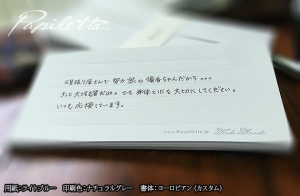 Papiletta
頑張り屋さんで努力家の優香ちゃんだから。。。
きっと大丈夫だよ。でも身体と心を大切にしてください。
いつも応援しています。
用紙：ライトブルー　印刷色：ナチュラルグレー　書体：ヨーロピアン（カスタム）